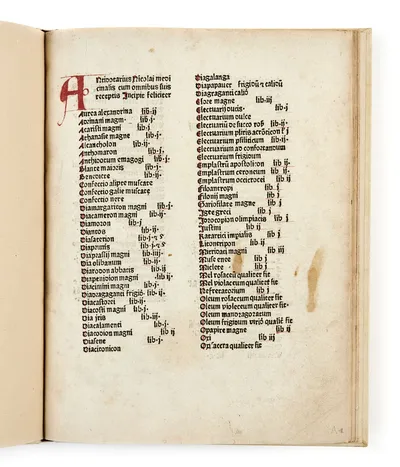 Antidotarius Nicolai medi
cinalis cum omnibus suis
receptis Incipit feliciter
Aurea alexandrina lib-ij
Adriani magni lib-j
Acaristi magni lib-j
Athanasie magne lib-j-
Alcancholon lib-ij
Anthomaron lib-j-
Anthiocum emagogi lib-j-
Blance maioris lib-j-
Benedicte lib-ij
Confectio alipte muscate
Confectio galie muscate
Confectio nere
Diamargariton magni lib-j-
Diacameron magni lib-j-
Diamoron lib-j
Diantos lib-j-
Diasatirion lib-j-
Diaprunis lib-j-
Diaprassij magni lib-
Dia olibanum lib-ij-
Diarodon abbatis lib-ij
Diapenidion magni lib-ij-
Diacimini magni lib-j-
Diadragaganti frigidi lib-ij-
Diacastorei lib-ij
Diacosti magni lib-j
Dia iris lib-ij
Diacalamenti lib-j-
Diacodion magni lib ij
Diasene lib-j-
Diacitonicon
Diagalanga
Diapapauer frigidū & calidū
Diagraganti calid
magne lib-iij
Electuarium ducis lib-j
Electuariū dulce
Electuariū de succo ros lib-ij-
Electuarium pliris
Electuarium psillicum lib-ij-
Electuarium ad confortandum
Electuarium frigidum
Emplastrū apostolicon lib-ij-
Emplastrum ceroneum lib-ij-
Emplastrum oxicrocei lib ij
Filoantropi lib j
Filonij magni lib j
Gariofilare magni lib j
Igere greci lib j
Iprocopian olimpiacis lib j
Iustini lib ij
lib j
Licontripon lib ij
Mitridati magni lib iij
Muse enee lib j
Miclete lib j
Mel rosaceū qualiter fit
Mel violaceum qualiter fit
Mefrereatorium lib j
Oleum rosaceum qualiter fit
Oleum violaceum qualiter fit
Oleum mandragoratum
Oleum frigidum viridi qualiter fit
Opapire magne lib ij
Oxi lib iij
Oxisaccra qualiter fit